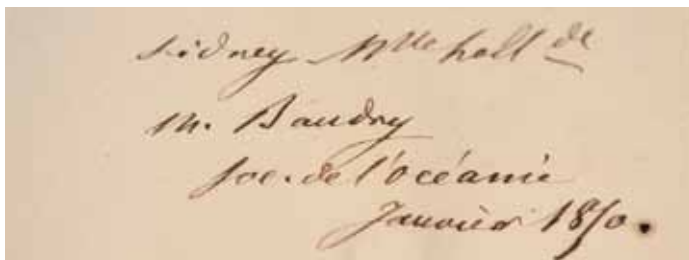 Sidney Nlle holl de
M. Baudry
soc. de l'océanie
Janvier 1850.